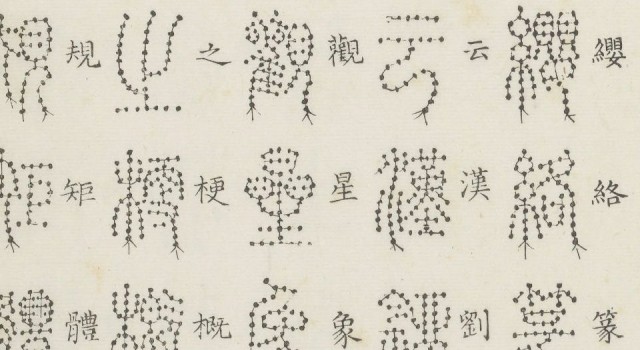 纓絡篆
云漢劉
觀星象
之梗概
規矩體